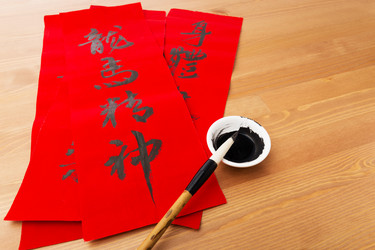 龍馬精神
體